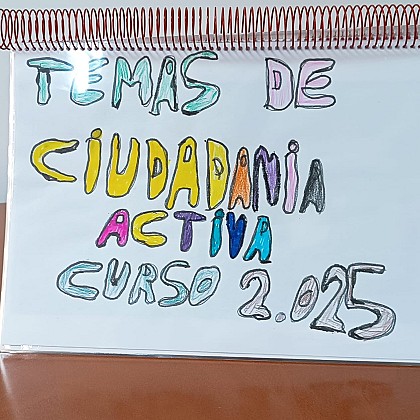 TEMAS DE
CIUDADANiA
ACTiVA
CURSO 2.025